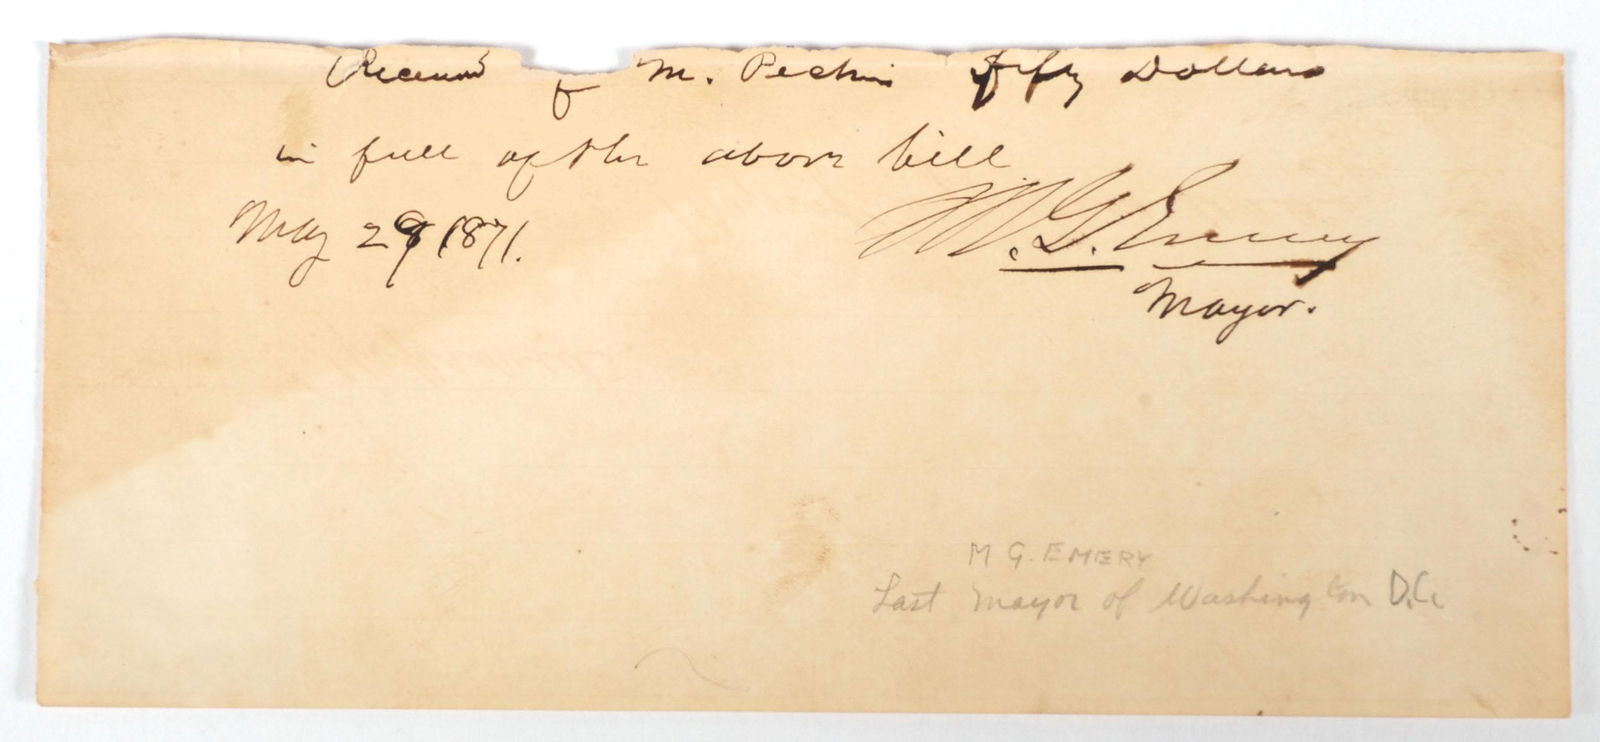 Received of M. Peckin Fifty Dollars
in full of the above bill
May 29 1871.
M. G. Emery
Mayor.
M G. EMERY
Last Mayor of Washington D.C.